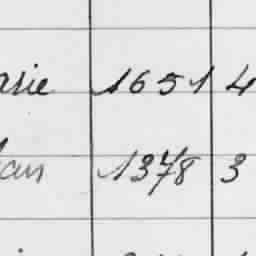 arie 1651 4
1378 3